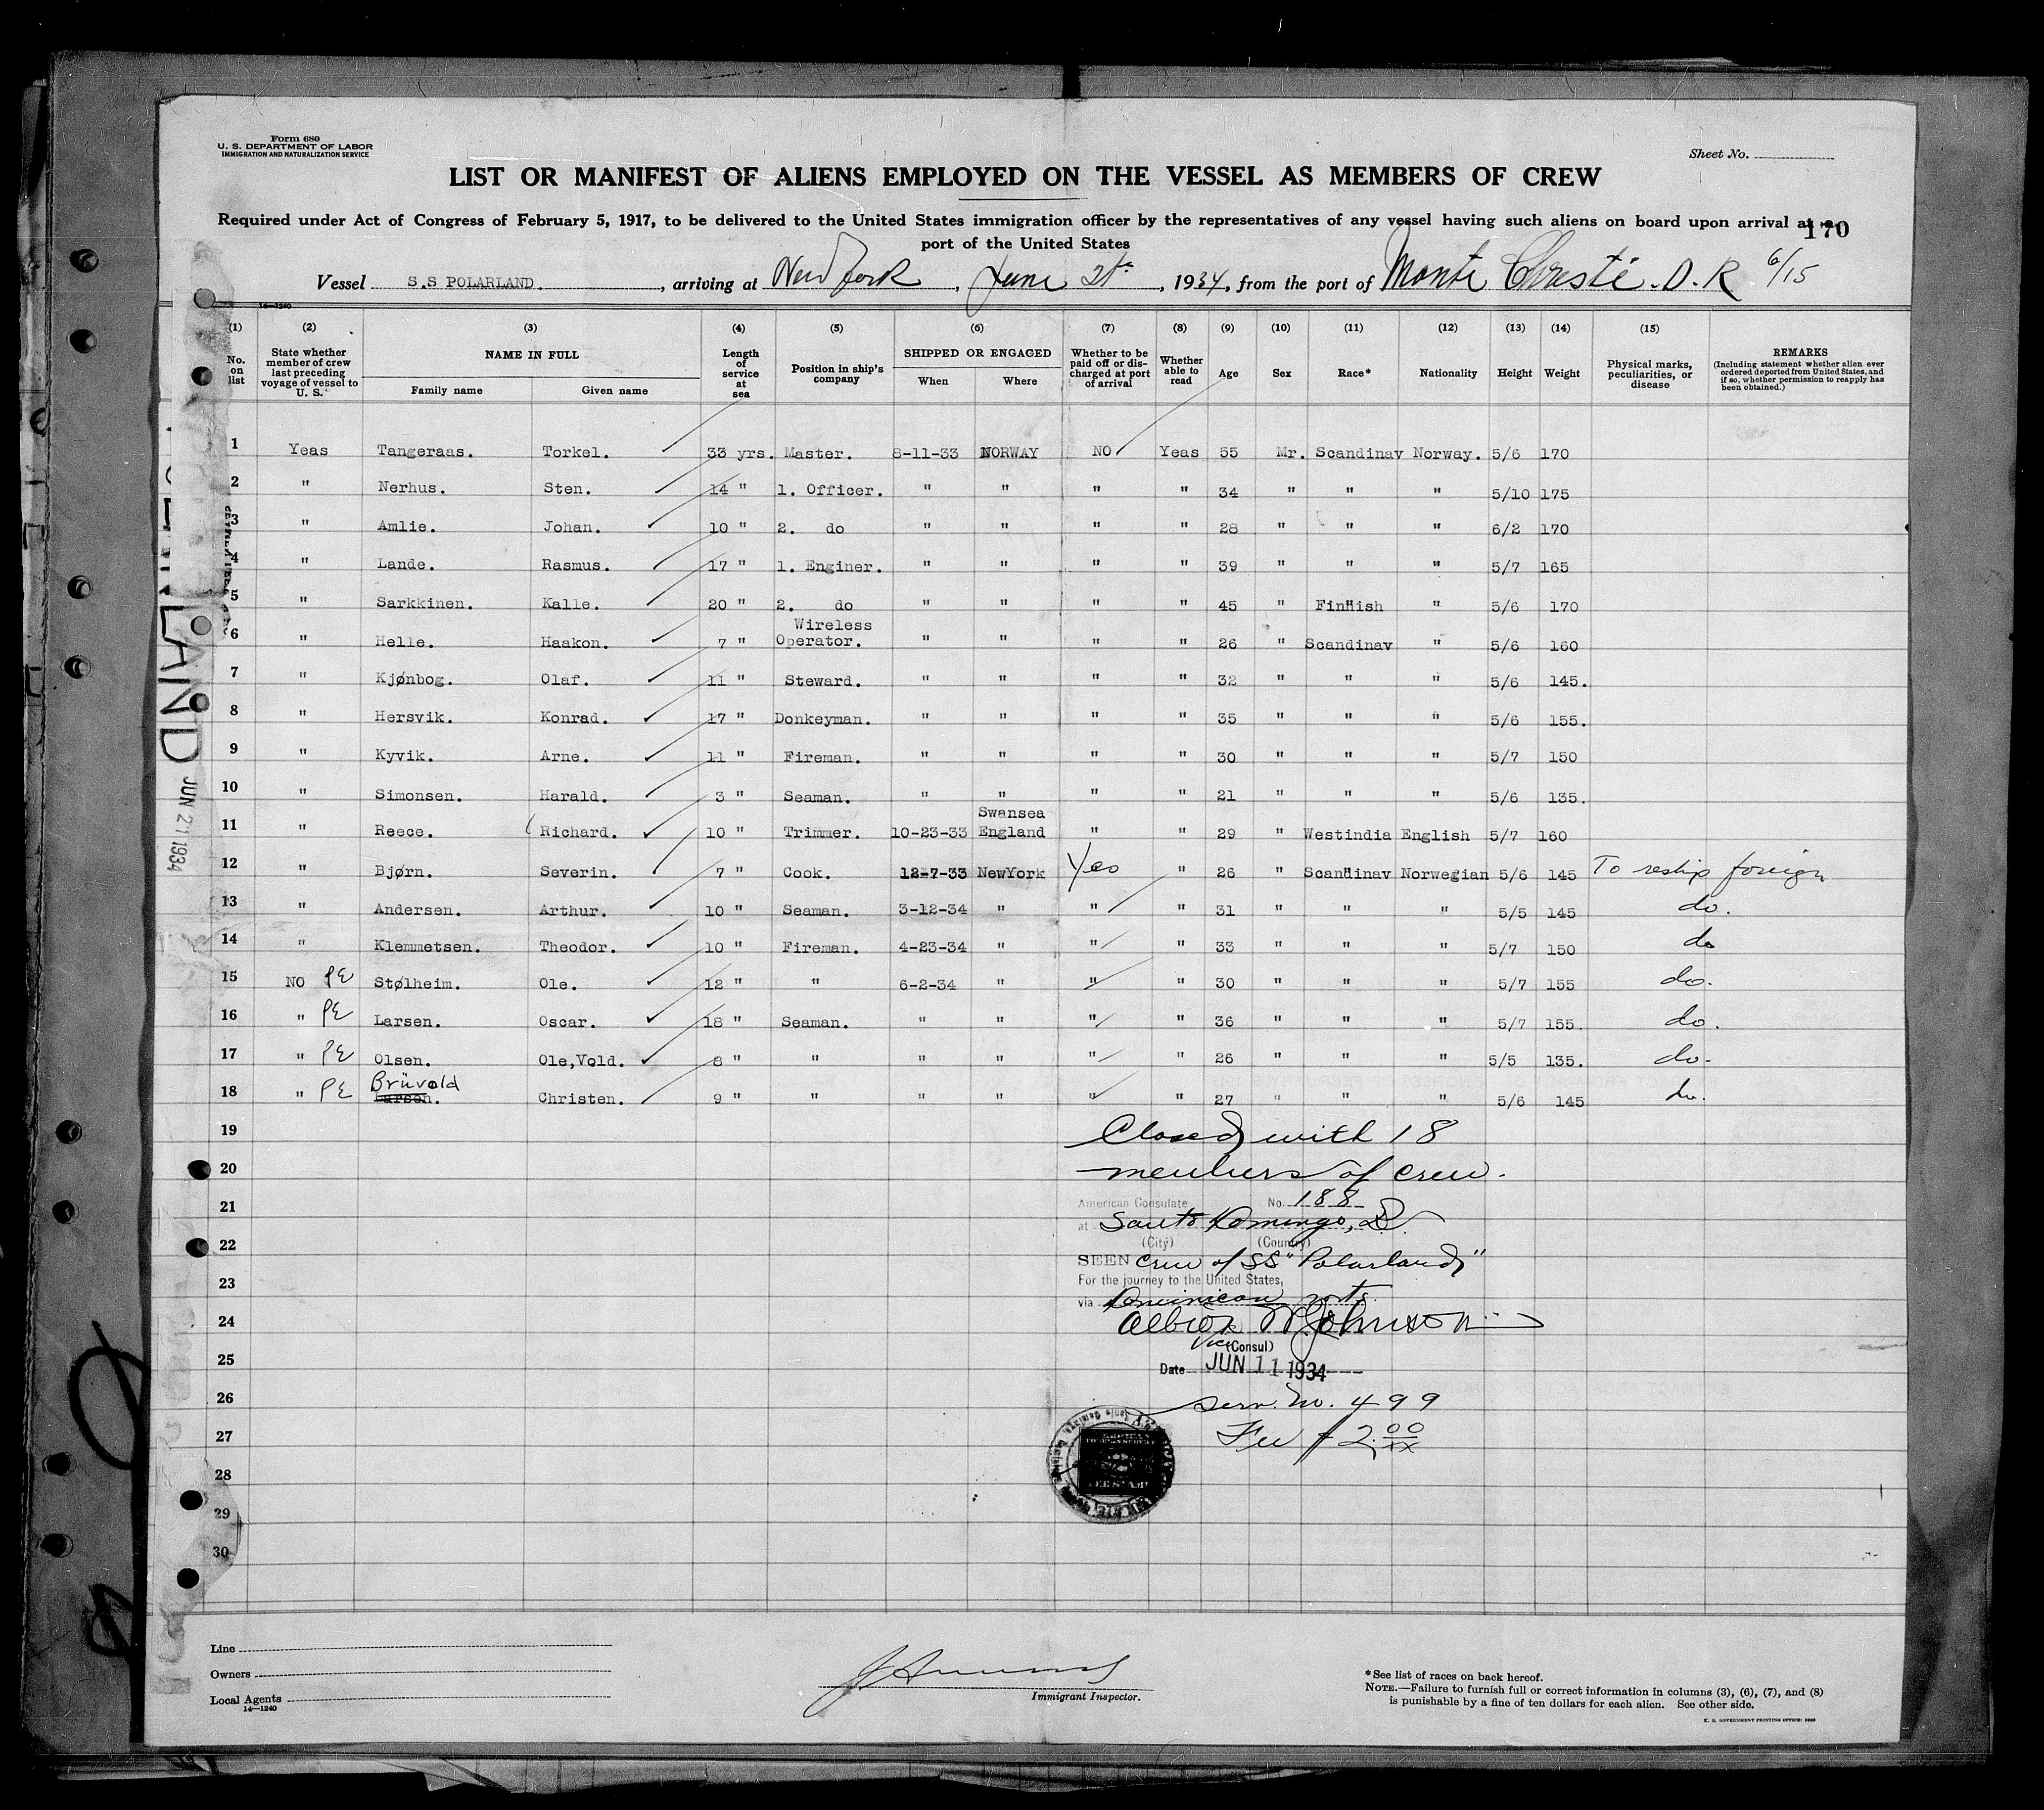 Form 680
U. S. DEPARTMENT OF LABOR
IMMIGRATION AND NATURALIZATION SERVICE
Sheet No.
LIST OR MANIFEST OF ALIENS EMPLOYED ON THE VESSEL AS MEMBERS OF CREW
Required under Act of Congress of February 5, 1917, to be delivered to the United States immigration officer by the representatives of any vessel having such aliens on board upon arrival at
170
port of the United States
Vessel S.S POLARLAND. , arriving at New York , June 21st , 1934, from the port of Monte Christi. D. R 6/15
14—1240
(1) (2) (3) (4) (5) (6) (7) (8) (9) (10) (11) (12) (13) (14) (15)
No. on list State whether member of crew last preceding voyage of vessel to U. S. NAME IN FULL Family name Given name Length of service at sea Position in ship's company SHIPPED OR ENGAGED When Where Whether to be paid off or discharged at port of arrival Whether able to read Age Sex Race* Nationality Height Weight Physical marks, peculiarities, or disease REMARKS (Including statement whether alien ever ordered deported from United States, and if so, whether permission to reapply has been obtained.)
1 Yeas Tangeraas. Torkel. 33 yrs. Master. 8-11-33 NORWAY NO Yeas 55 Mr. Scandinav Norway. 5/6 170
2 " Nerhus. Sten. 14 " 1. Officer. " " " " 34 " " " 5/10 175
3 " Amlie. Johan. 10 " 2. do " " " " 28 " " " 6/2 170
4 " Lande. Rasmus. 17 " 1. Enginer. " " " " 39 " " " 5/7 165
5 " Sarkkinen. Kalle. 20 " 2. do " " " " 45 " Finnish " 5/6 170
6 " Helle. Haakon. 7 " Wireless Operator. " " " " 26 " Scandinav " 5/6 160
7 " Kjønbog. Olaf. 11 " Steward. " " " " 32 " " " 5/6 145.
8 " Hersvik. Konrad. 17 " Donkeyman. " " " " 35 " " " 5/6 155.
9 " Kyvik. Arne. 11 " Fireman. " " " " 30 " " " 5/7 150
10 " Simonsen. Harald. 3 " Seaman. " " " " 21 " " " 5/6 135.
11 " Reece. Richard. 10 " Trimmer. 10-23-33 Swansea England " " 29 " Westindia English 5/7 160
12 " Bjørn. Severin. 7 " Cook. 12-7-33 NewYork Yes " 26 " Scandinav Norwegian 5/6 145 To reship foreign
13 " Andersen. Arthur. 10 " Seaman. 3-12-34 " " " 31 " " " 5/5 145 do.
14 " Klemmetsen. Theodor. 10 " Fireman. 4-23-34 " " " 33 " " " 5/7 150 do
15 NO PE Stølheim. Ole. 12 " " 6-2-34 " " " 30 " " " 5/7 155 do.
16 " PE Larsen. Oscar. 18 " Seaman. " " " " 36 " " " 5/7 155. do.
17 " PE Olsen. Ole,Vold. 8 " " " " " " 26 " " " 5/5 135. do.
18 " PE Brüvold Larsen. Christen. 9 " " " " " " 27 " " " 5/6 145 do.
19 Closed with 18
20 members of crew.
21 American Consulate No. 188
at Santo Domingo, D.
22 (City) (Country)
SEEN Crew of SS "Polarland"
23 For the journey to the United States,
via Dominican ports.
24 Albion W Johnson
Vice (Consul)
25 Date JUN 11 1934
26 Serv. No. 499
27 Fee $ 2.00/xx
28
29
30
POLARLAND
JUN 21 1934
Line
Owners
Local Agents
14—1240
Immigrant Inspector.
*See list of races on back hereof.
NOTE.—Failure to furnish full or correct information in columns (3), (6), (7), and (8)
is punishable by a fine of ten dollars for each alien. See other side.
U. S. GOVERNMENT PRINTING OFFICE: 1933